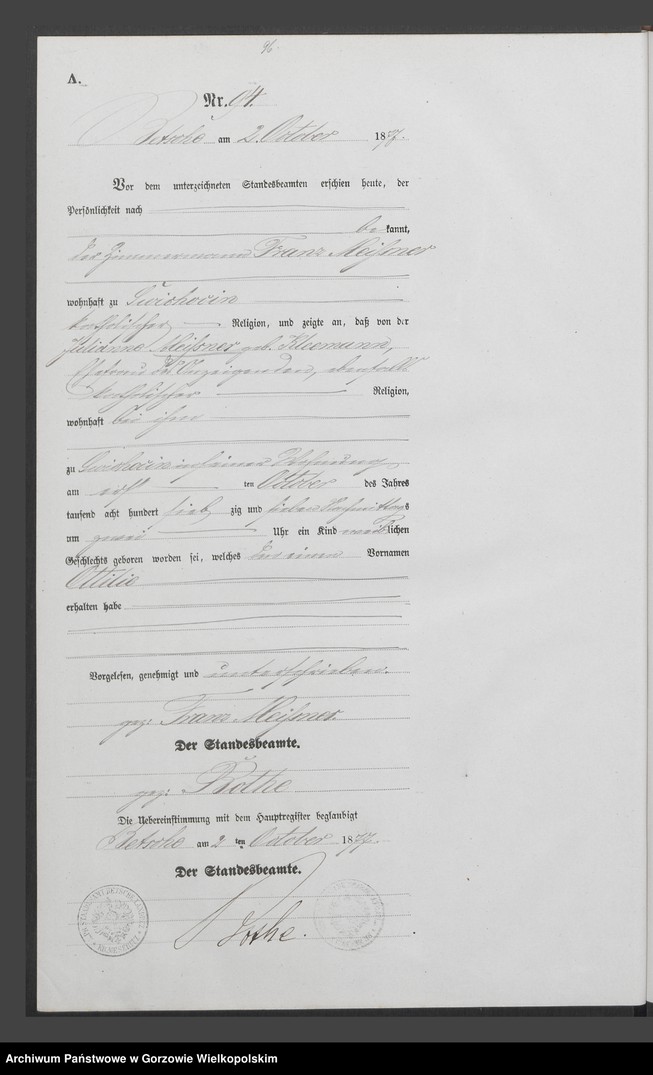 96.
A.
Nr. 94.
Betsche am 2. October 1877.
Vor dem unterzeichneten Standesbeamten erschien heute, der
Persönlichkeit nach
bekannt,
der Zimmermann Franz Meißner
wohnhaft zu Swichocin
katholischer Religion, und zeigte an, daß von der
Julianna Meißner geb. Kleemann,
Ehefrau des Anzeigenden, ebenfalls
katholischer Religion,
wohnhaft bei ihm
zu Swichocin in seiner Wohnung
am ersten October des Jahres
tausend acht hundert siebzig und sieben Nachmittags
um zwei Uhr ein Kind weiblichen
Geschlechts geboren worden sei, welches Vornamen
Ottilie
erhalten habe
Vorgelesen, genehmigt und unterschrieben.
gez: Franz Meißner.
Der Standesbeamte.
gez: Rothe
Die Uebereinstimmung mit dem Hauptregister beglaubigt
Betsche am 2 ten October 1877.
Der Standesbeamte.
Rothe.
Archiwum Państwowe w Gorzowie Wielkopolskim